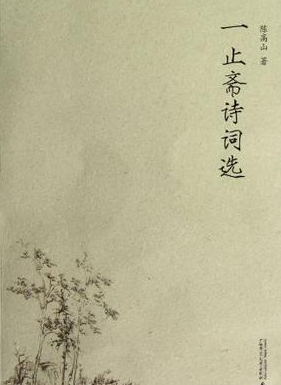 一止斋诗词选
陈高山 著